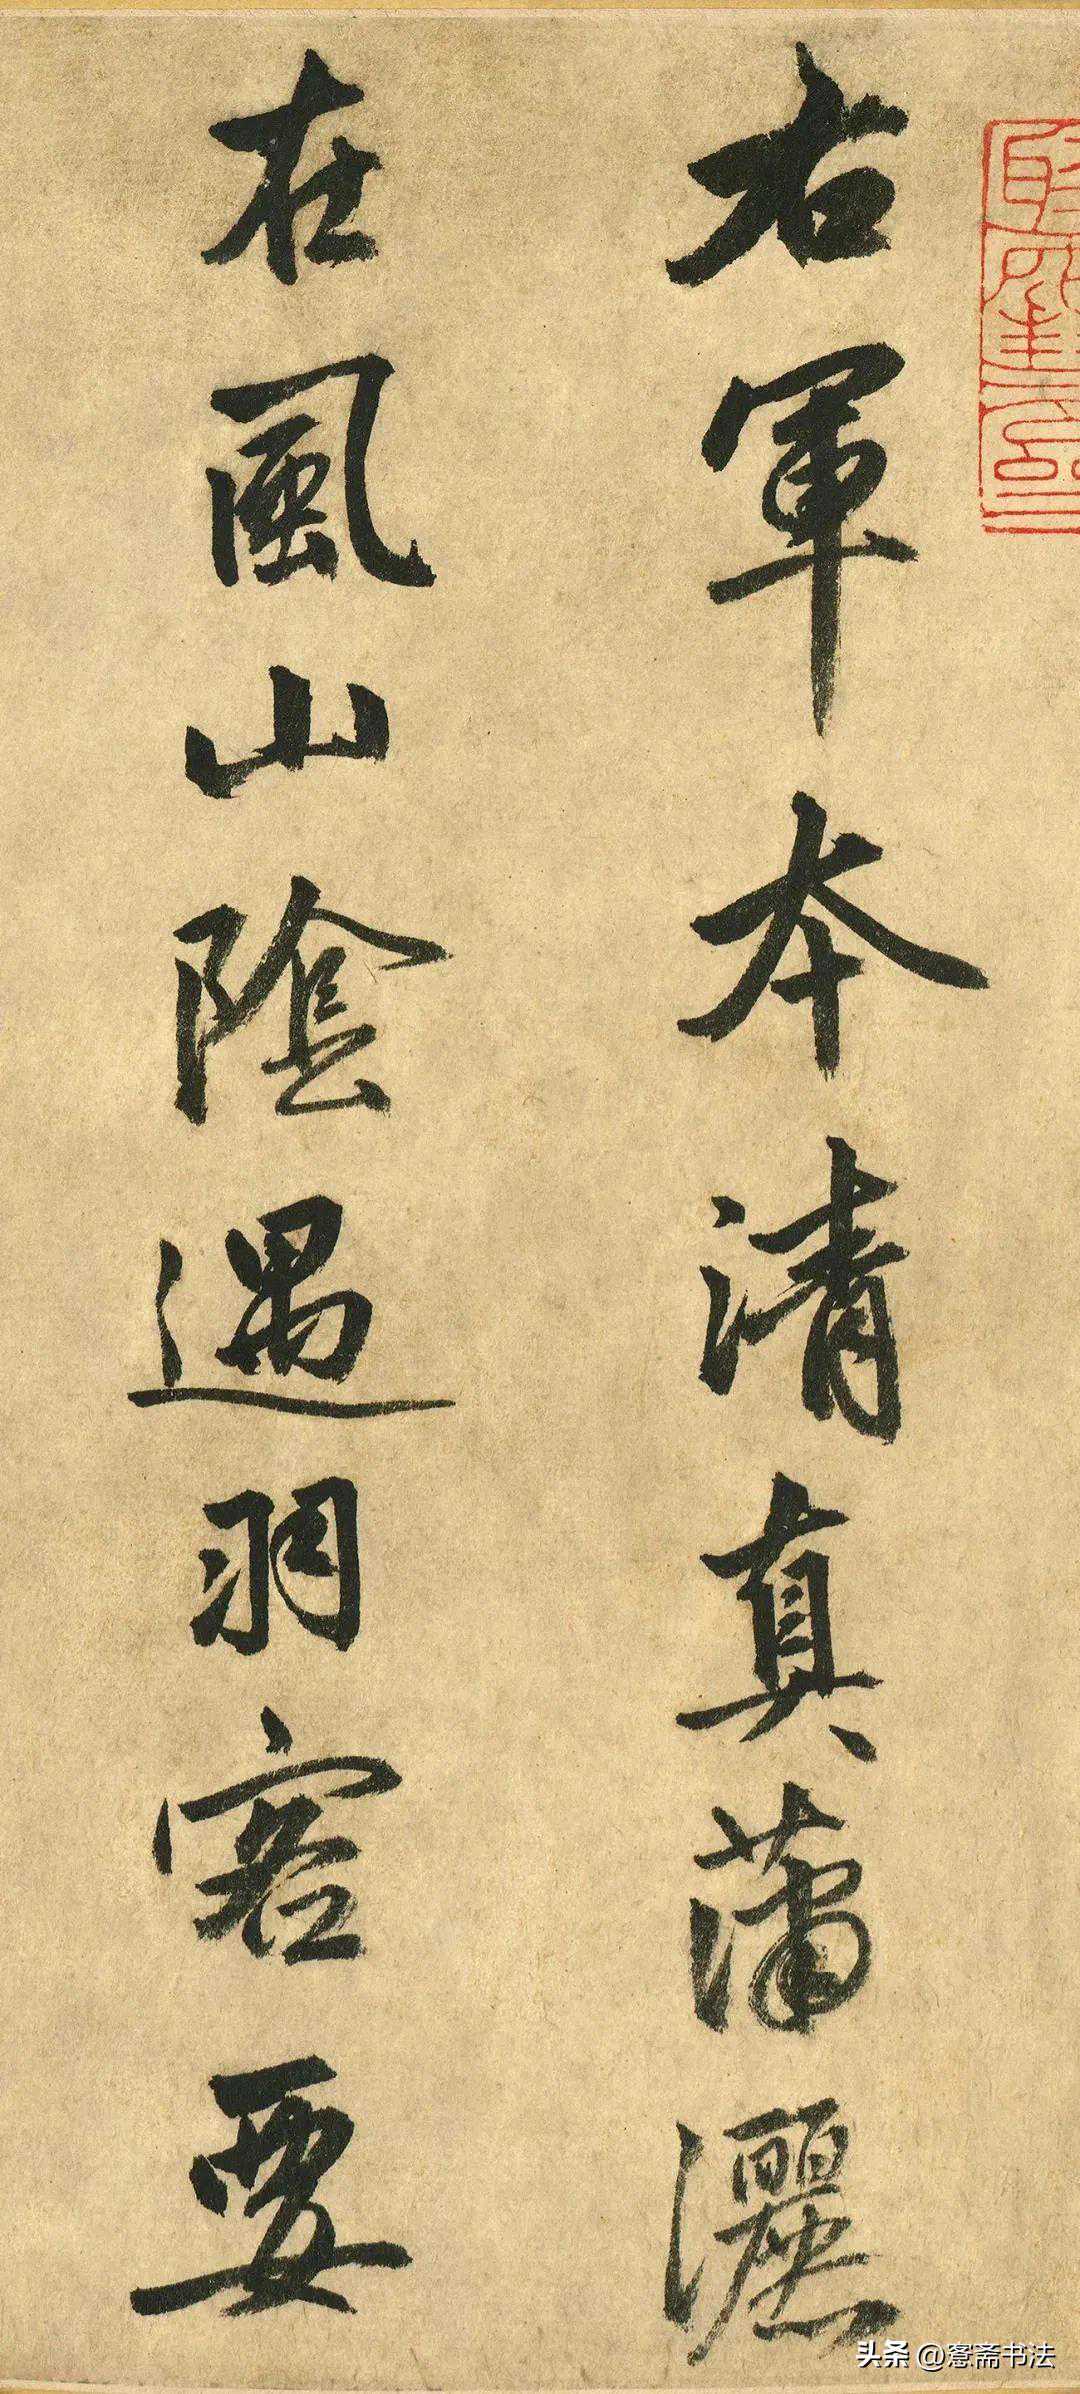 右軍本清真蕭灑
在風山陰遇羽客要
头条 @窓斋书法